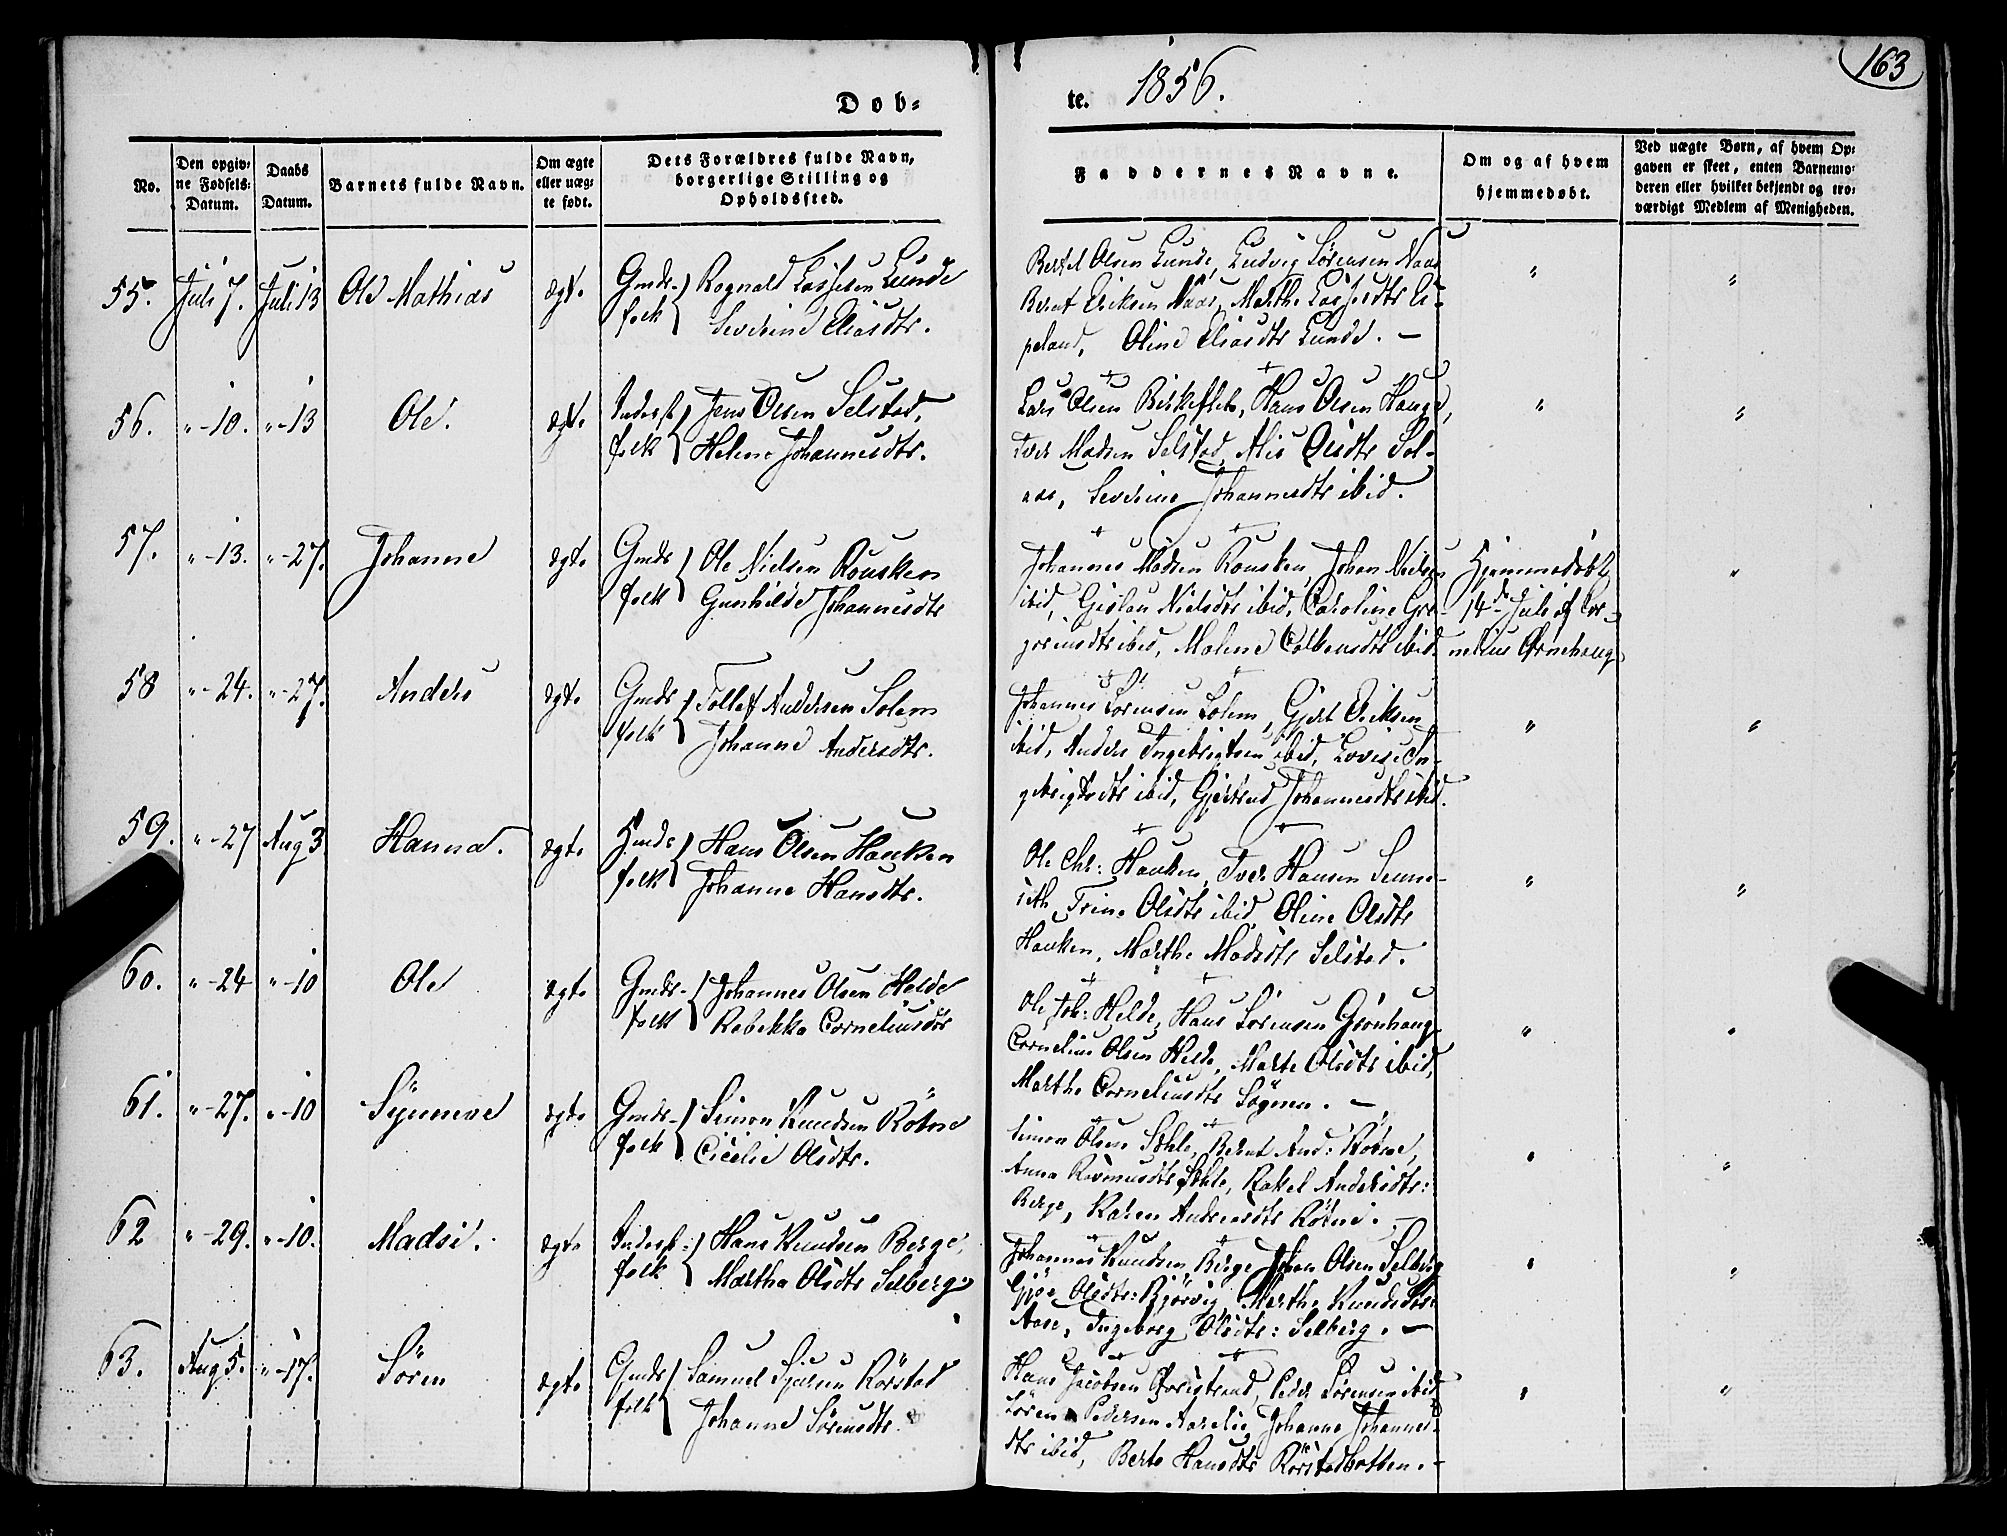 163
Dob-
te. 1856.
No.
Den opgiv-
ne Fødsels-
Datum.
Daabs
Datum.
Barnets fulde Navn.
Om ægte
eller uæg-
te født.
Dets Forældres fulde Navn,
borgerlige Stilling og
Opholdssted.
Faddernes Navne.
Om og af hvem
hjemmedøbt.
Ved uægte Børn, af hvem Op-
gaven er skeet, enten Barnemo-
deren eller hvilket bekjendt og tro-
værdigt Medlem af Menigheden.
55. Juli 7. Juli 13 Ole Mathias ægte
Gmds- Rognald Lassesen Lunde
folk Severine Eliasdtr.
Bertel Olsen Lunde, Ludvig Sörensen Naas
Bernt Eriksen Naas, Marthe Lassesdtr Ei-
peland, Oline Eliasdtr Lunde. —
" "
56. "-10. "-13 Ole. ægte
Inderst Jens Olsen Selstad,
folk Helene Johannesdtr.
Lars Olsen Birkeflet, Hans Olsen Hauge,
Iver Madsen Selstad, Alis Olsdtr Sol-
aas, Severine Johannesdtr ibid.
" "
57. "-13. "-27. Johanne ægte
Gmds Ole Nielsen Rousken
folk Gunhilde Johannesdtr
Johannes Madsen Rousken, Johan Nielsen
ibid, Gislau Nielsdtr ibid, Caroline Gre-
goriusdtr ibid, Malene Colbensdtr ibid.
Hjemmedöbt
14de Juli af Cor-
nelius Ørnehaug
"
58 "-24. "-27. Anders ægte
Gmds Tollef Andersen Solem
folk Johanne Andersdtr.
Johannes Sörensen Solem, Gjert Eriksen
ibid, Anders Ingebrigtsen ibid, Lovise In-
gebrigtsdtr ibid, Gjertrud Johannesdtr ibid.
" "
59. "-27 Aug 3 Hanna. ægte
Gmds Hans Olsen Hauken
folk Johanne Hansdtr.
Ole Chr: Hauken, Iver Hansen Senne-
seth Trine Olsdtr ibid, Oline Olsdtr
Hauken, Marthe Madsdtr Selstad.
" "
60. "-24 "-10 Ole ægte
Gmds- Johannes Olsen Helde
folk Rebekka Corneliusdtr
Ole Joh: Helde, Hans Sörensen Grönhaug
Cornelius Olsen Helde, Marte Olsdtr ibid,
Marthe Corneliusdtr Sögnen. —
" "
61. "-27. "-10 Synneve ægte
Gmds- Simon Knudsen Rötne
folk Cicilie Olsdtr.
Simon Olsen Sæhle, Bernt And: Rötne,
Anna Rasmusdtr Sæhle, Rakel Andersdtr:
Berge, Karen Andersdtr Rötne. —
" "
62 "-29. "-10. Madsi. ægte
Inderst: Hans Knudsen Berge,
folk Martha Olsdtr Selberg
Johannes Knudsen Berge Johan Olsen Selberg
Olsdtr: Bjørvig, Marthe Knudsdtr
Aase, Ingeborg Olsdtr: Selberg. —
" "
63. Aug 5. "-17. Sören ægte
Gmds Samuel Sjursen Rörstad
folk Johanne Sörensdtr.
Hans Jacobsen Qvistrand, Peder Sörensen ibid
Sören Pedersen Aarelie, Johanne Johannes-
dtr ibid, Berte Hansdtr Rörstadbotten. -
" "